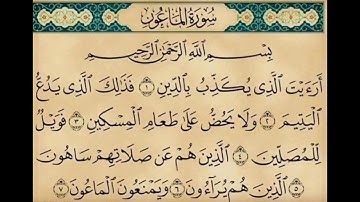 سُورَةُ الْمَاعُونِ
بِسْمِ اللَّهِ الرَّحْمَٰنِ الرَّحِيمِ
أَرَءَيْتَ الَّذِي يُكَذِّبُ بِالدِّينِ ١ فَذَٰلِكَ الَّذِي يَدُعُّ
الْيَتِيمَ ٢ وَلَا يَحُضُّ عَلَىٰ طَعَامِ الْمِسْكِينِ ٣ فَوَيْلٌ
لِلْمُصَلِّينَ ٤ الَّذِينَ هُمْ عَنْ صَلَاتِهِمْ سَاهُونَ
٥ الَّذِينَ هُمْ يُرَآءُونَ ٦ وَيَمْنَعُونَ الْمَاعُونَ ٧